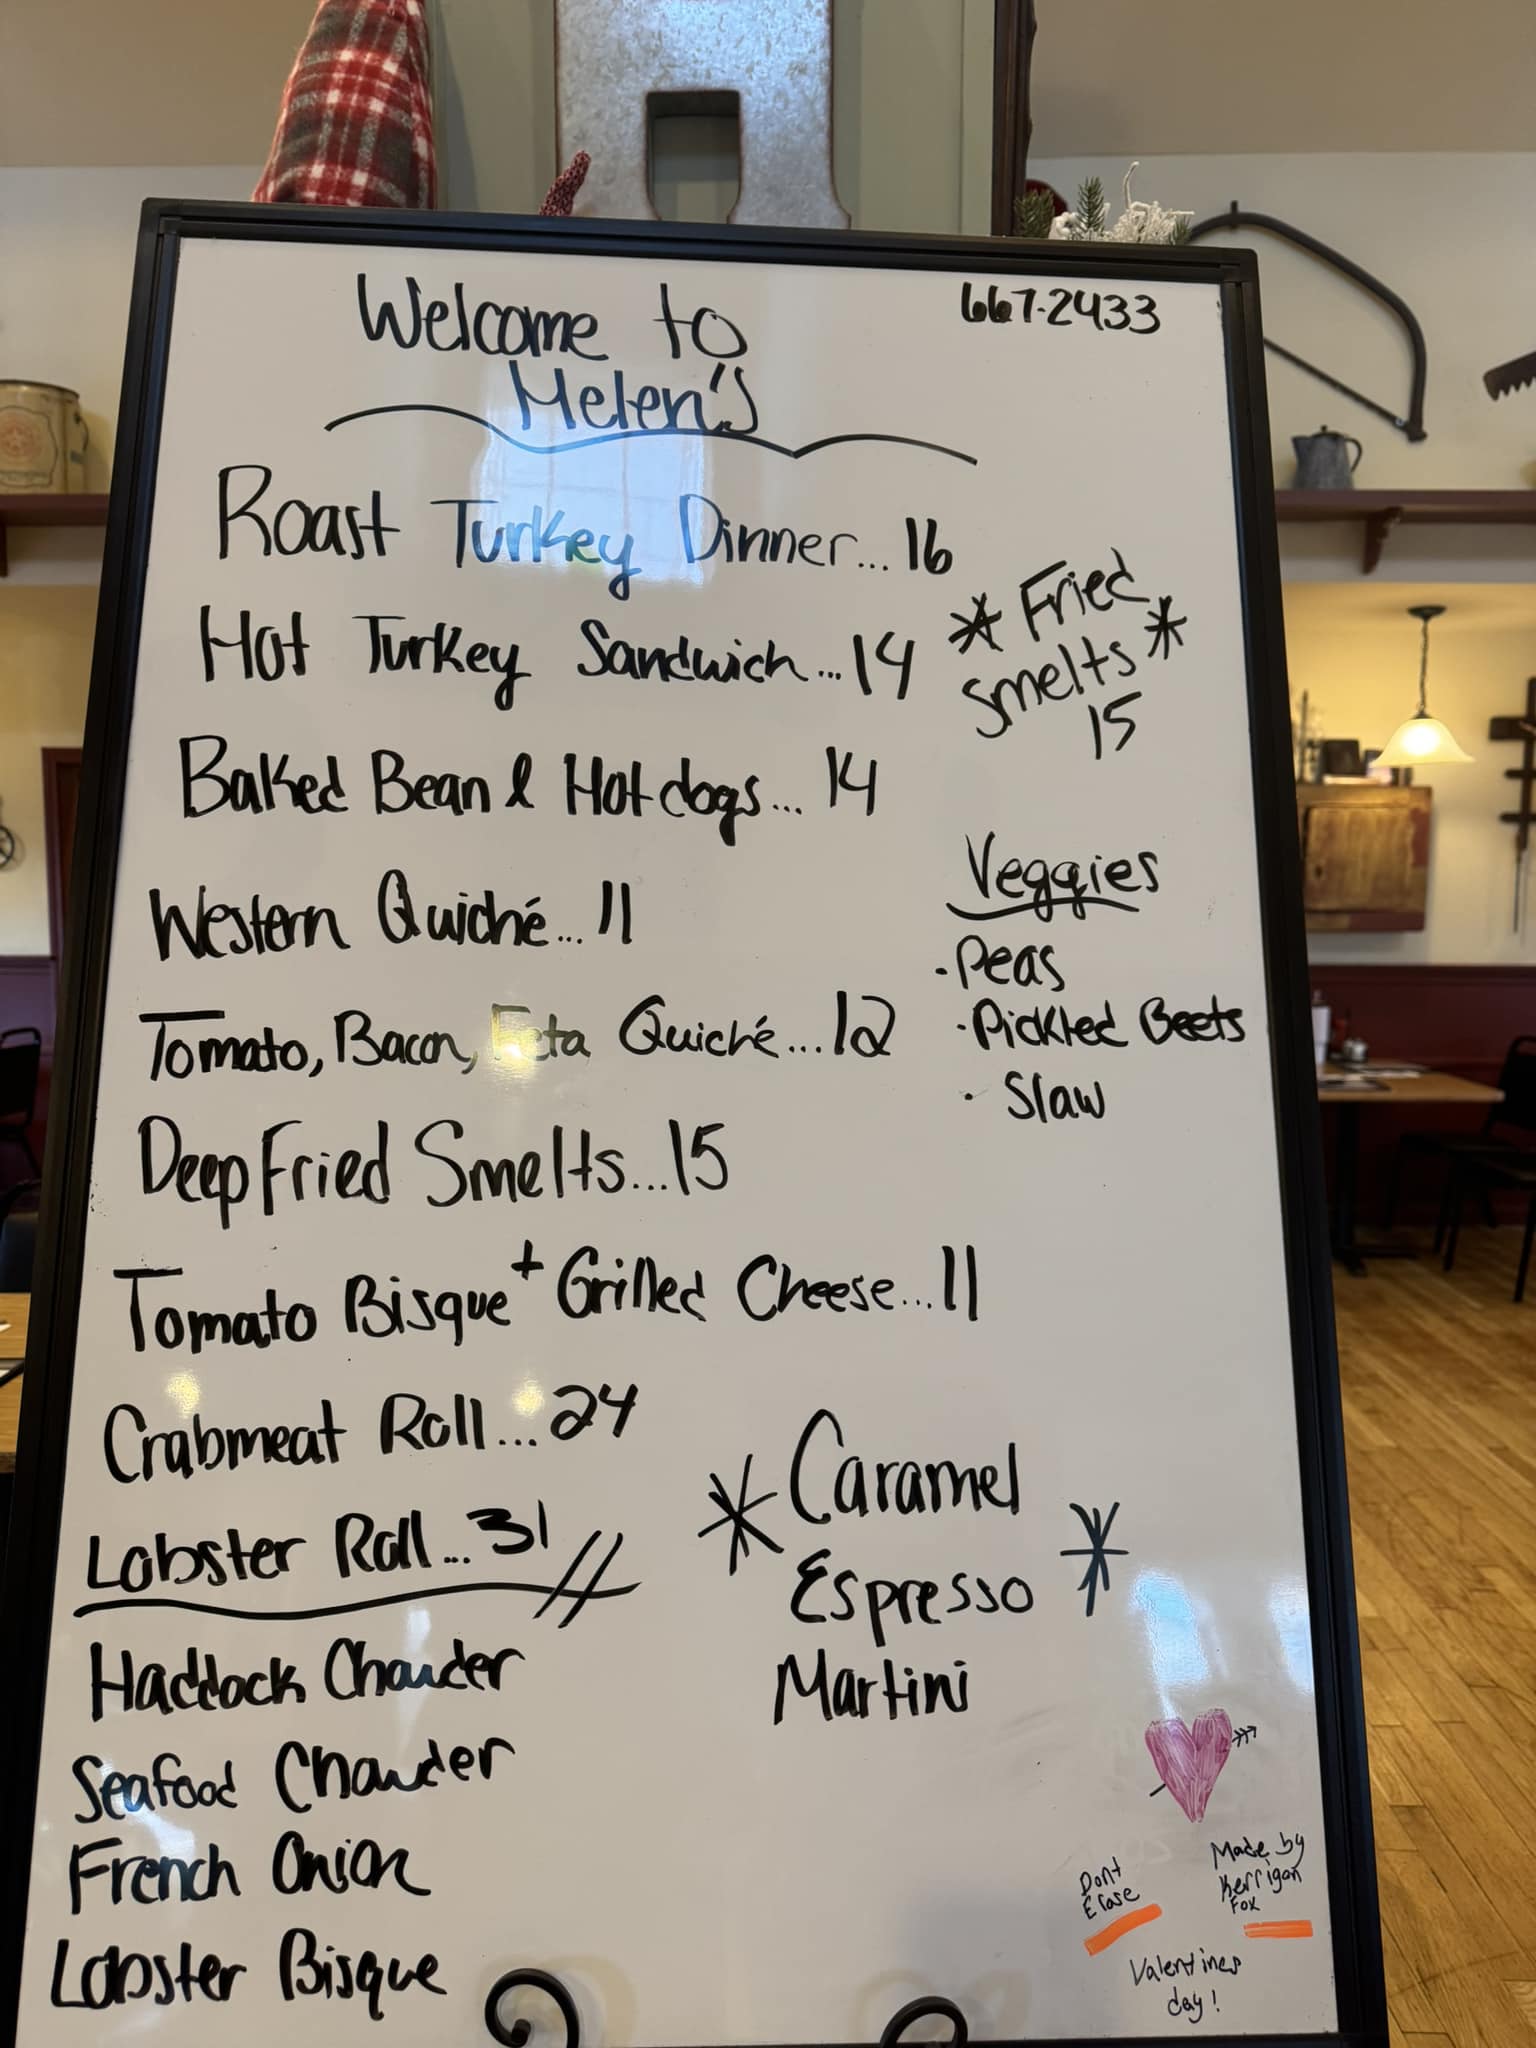 667-2433
Welcome to
Helen's
Roast Turkey Dinner...16
Hot Turkey Sandwich...14
Baked Bean & Hotdogs...14
Western Quiché...11
Tomato, Bacon, Feta Quiché...12
Deep Fried Smelts...15
Tomato Bisque + Grilled Cheese...11
Crabmeat Roll...24
Lobster Roll...31
Haddock Chowder
Seafood Chowder
French Onion
Lobster Bisque
* Fried
Smelts *
15
Veggies
·Peas
·Pickled Beets
· Slaw
* Caramel
Espresso *
Martini
Dont
Erase
Made by
Kerrigan
Fox
Valentines
day!